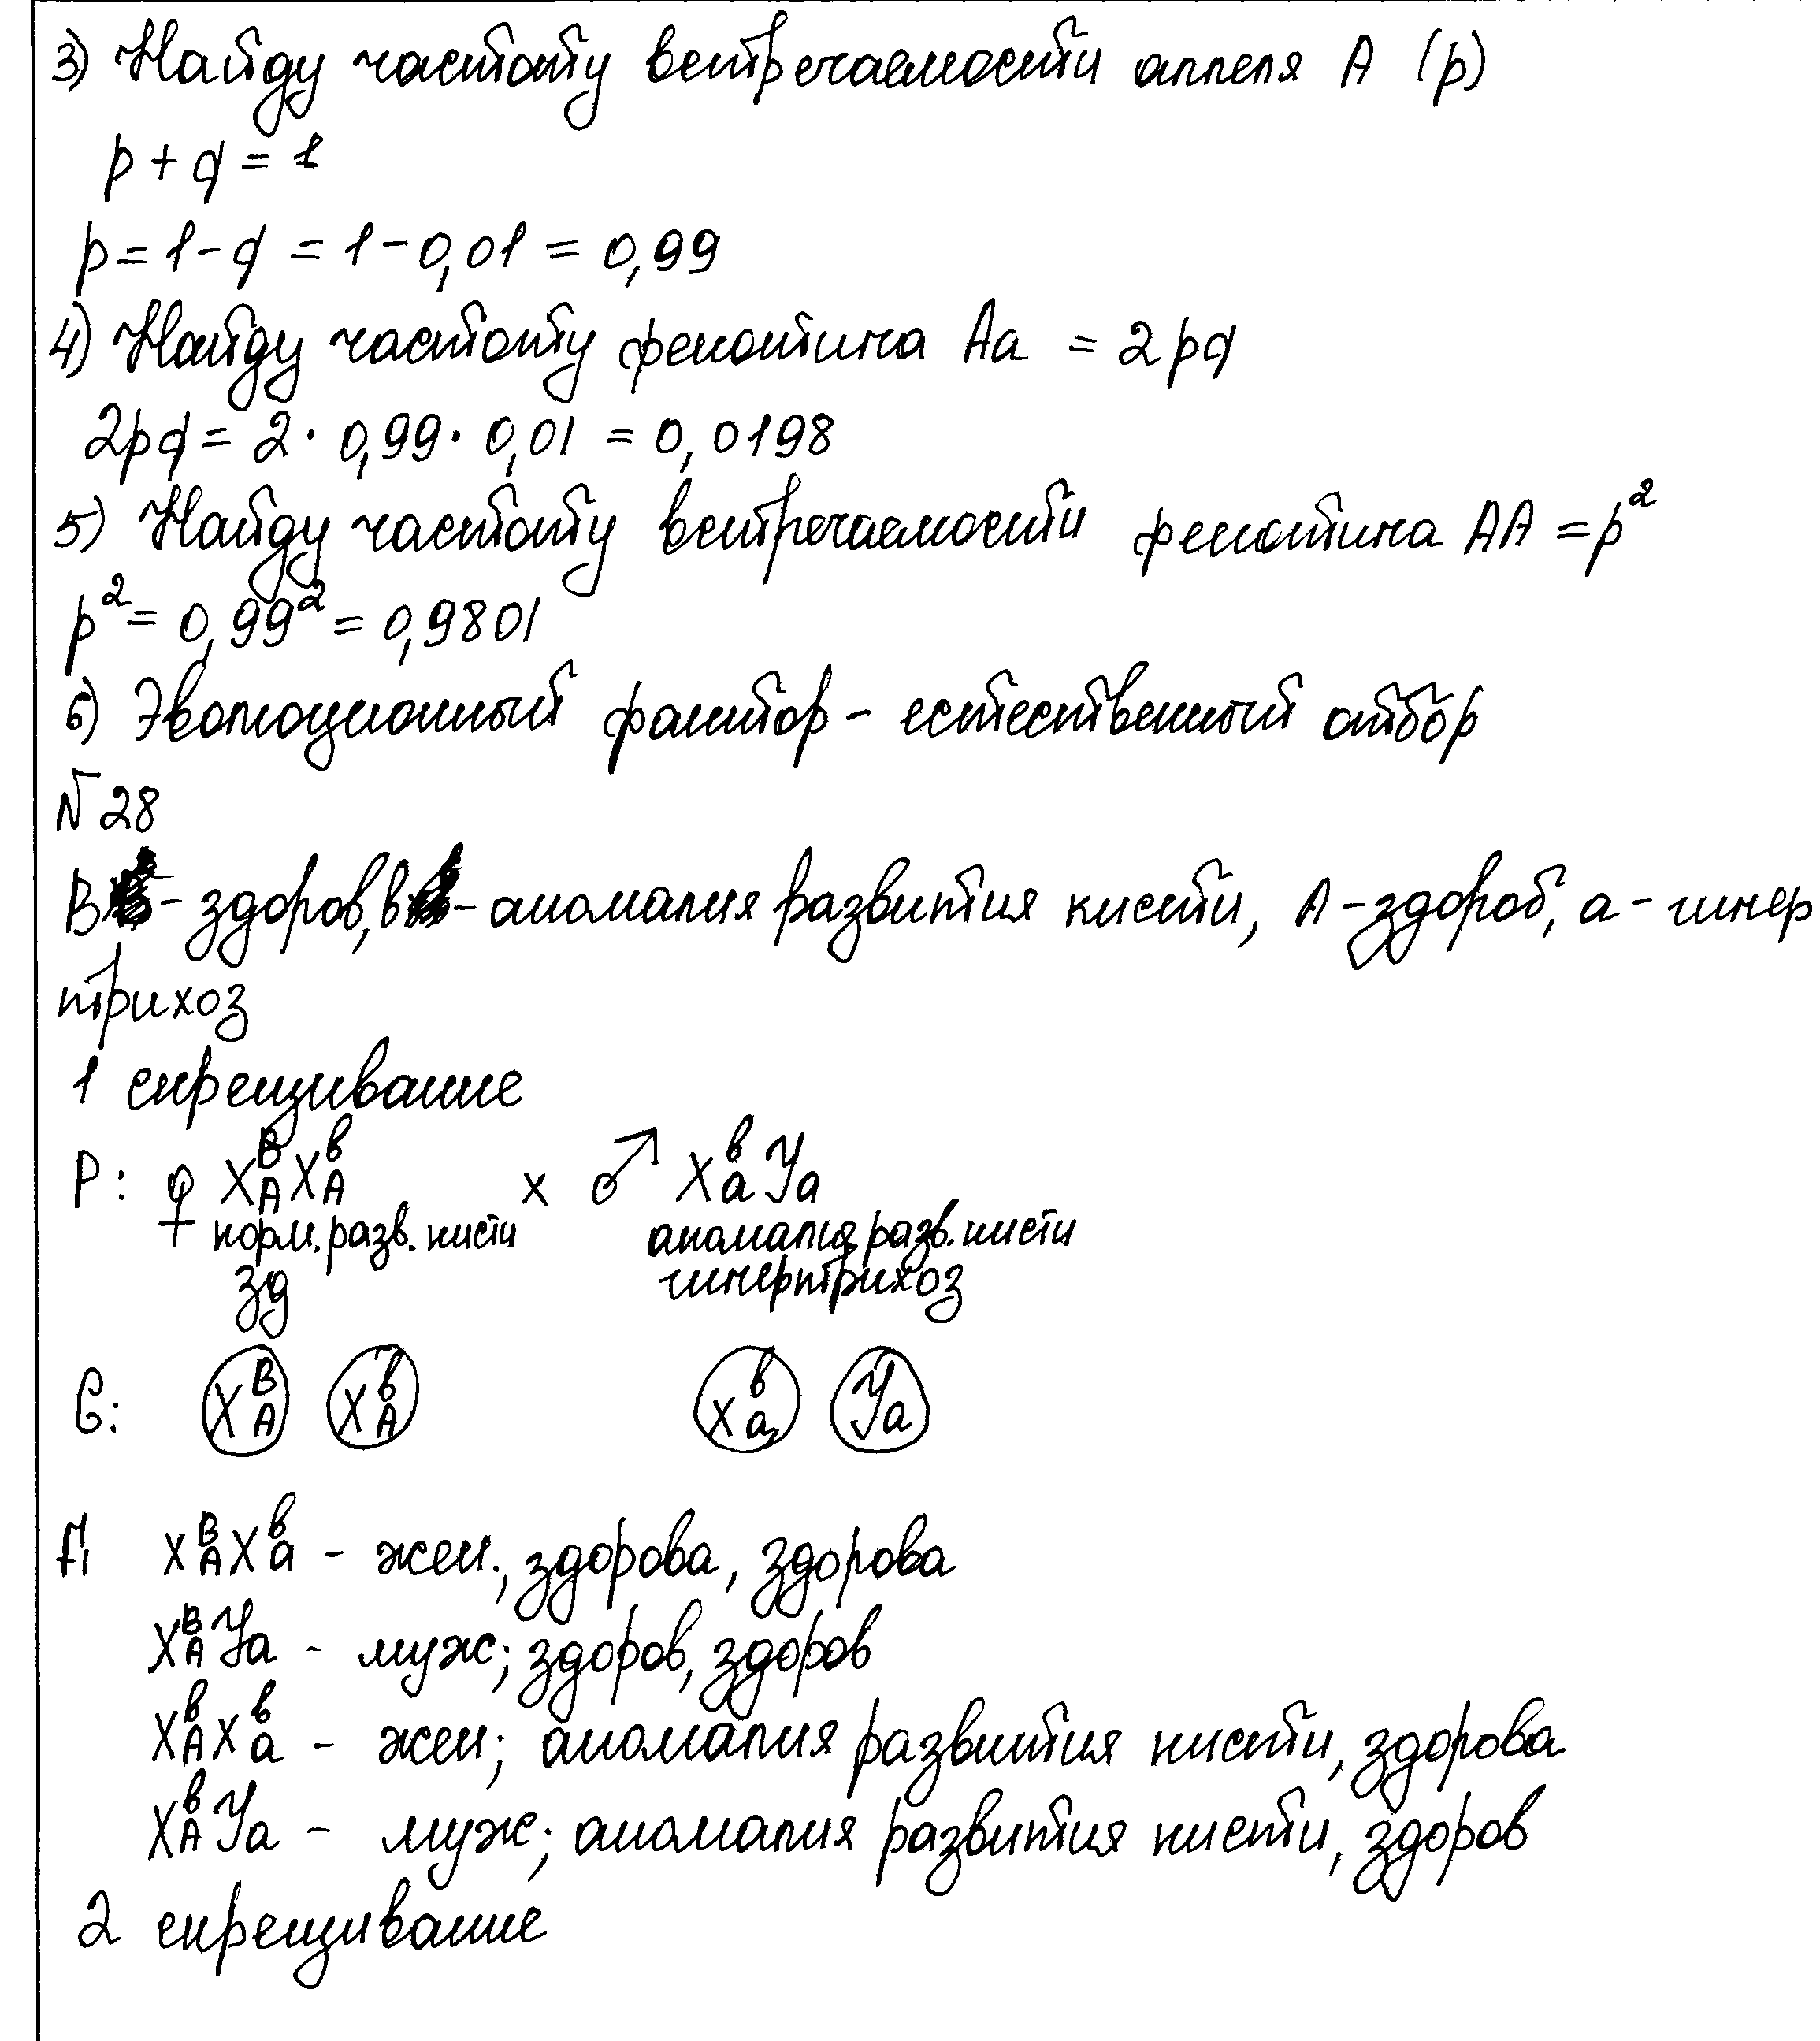 3) Найду частоту встречаемости аллеля A (p)
p + q = 1
p = 1 - q = 1 - 0,01 = 0,99
4) Найду частоту фенотипа Aa = 2pq
2pq = 2 · 0,99 · 0,01 = 0,0198
5) Найду частоту встречаемости фенотипа AA = p²
p² = 0,99² = 0,9801
6) Эволюционный фактор - естественный отбор
№28
B - здоров, в - аномалия развития кисти, A - здоров, a - гипер
трихоз
1 скрещивание
P: ♀ X^B_A X^в_A x ♂ X^в_a Y_a
норм. разв. кисти аномалия разв. кисти
зд гипертрихоз
G: X^B_A X^в_A X^в_a Y_a
F1 X^B_A X^в_a - жен., здорова, здорова
X^B_A Y_a - муж; здоров, здоров
X^в_A X^в_a - жен; аномалия развития кисти, здорова
X^в_A Y_a - муж; аномалия развития кисти, здоров
2 скрещивание